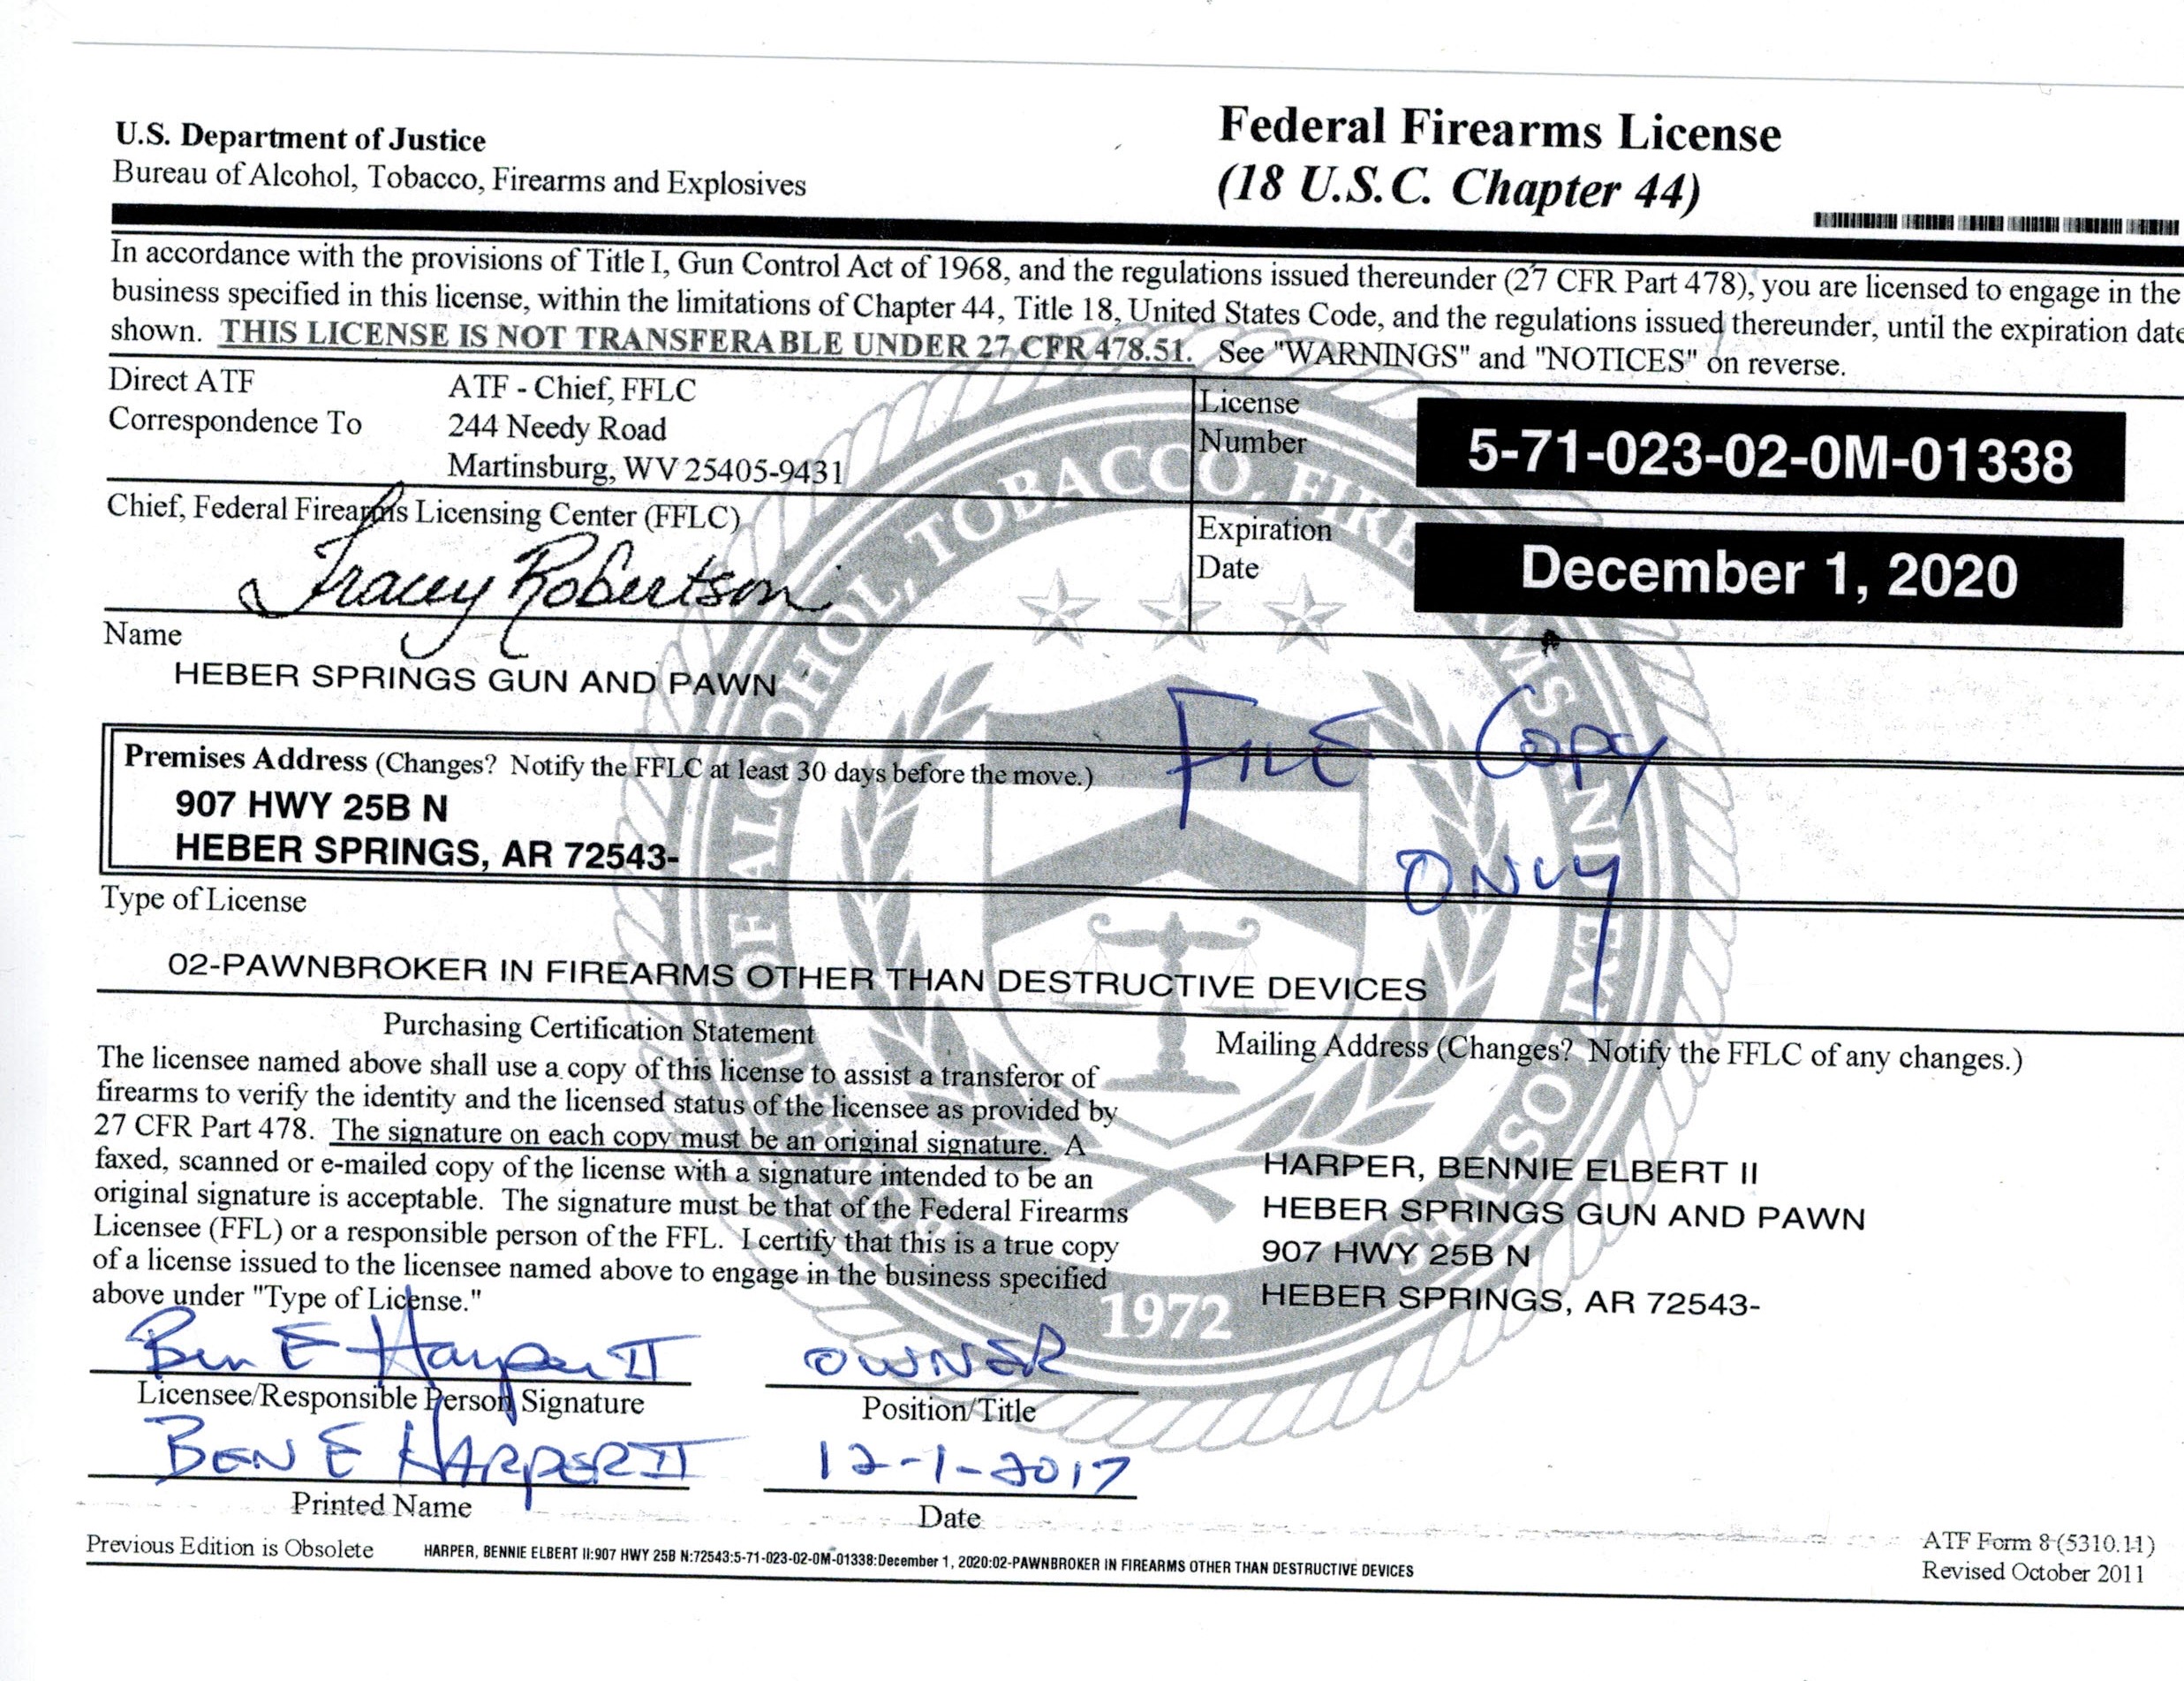 U.S. Department of Justice
Bureau of Alcohol, Tobacco, Firearms and Explosives
Federal Firearms License
(18 U.S.C. Chapter 44)
In accordance with the provisions of Title I, Gun Control Act of 1968, and the regulations issued thereunder (27 CFR Part 478), you are licensed to engage in the
business specified in this license, within the limitations of Chapter 44, Title 18, United States Code, and the regulations issued thereunder, until the expiration date
shown. THIS LICENSE IS NOT TRANSFERABLE UNDER 27 CFR 478.51. See "WARNINGS" and "NOTICES" on reverse.
Direct ATF
Correspondence To
ATF - Chief, FFLC
244 Needy Road
Martinsburg, WV 25405-9431
License
Number
5-71-023-02-0M-01338
Chief, Federal Firearms Licensing Center (FFLC)
Tracey Robertson
Expiration
Date
December 1, 2020
Name
HEBER SPRINGS GUN AND PAWN
FILE COPY
ONLY
Premises Address (Changes? Notify the FFLC at least 30 days before the move.)
907 HWY 25B N
HEBER SPRINGS, AR 72543-
Type of License
02-PAWNBROKER IN FIREARMS OTHER THAN DESTRUCTIVE DEVICES
Purchasing Certification Statement
The licensee named above shall use a copy of this license to assist a transferor of
firearms to verify the identity and the licensed status of the licensee as provided by
27 CFR Part 478. The signature on each copy must be an original signature. A
faxed, scanned or e-mailed copy of the license with a signature intended to be an
original signature is acceptable. The signature must be that of the Federal Firearms
Licensee (FFL) or a responsible person of the FFL. I certify that this is a true copy
of a license issued to the licensee named above to engage in the business specified
above under "Type of License."
Mailing Address (Changes? Notify the FFLC of any changes.)
HARPER, BENNIE ELBERT II
HEBER SPRINGS GUN AND PAWN
907 HWY 25B N
HEBER SPRINGS, AR 72543-
1972
Ben E Harper II
OWNER
Licensee/Responsible Person Signature
Position/Title
BEN E HARPER II
12-1-2017
Printed Name
Date
Previous Edition is Obsolete
HARPER, BENNIE ELBERT II:907 HWY 25B N:72543:5-71-023-02-0M-01338:December 1, 2020:02-PAWNBROKER IN FIREARMS OTHER THAN DESTRUCTIVE DEVICES
ATF Form 8 (5310.11)
Revised October 2011